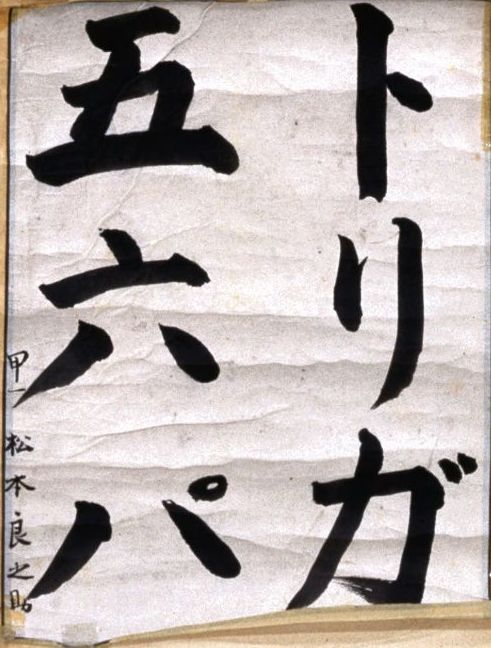 トリガ
五六パ
甲一 松本良之助